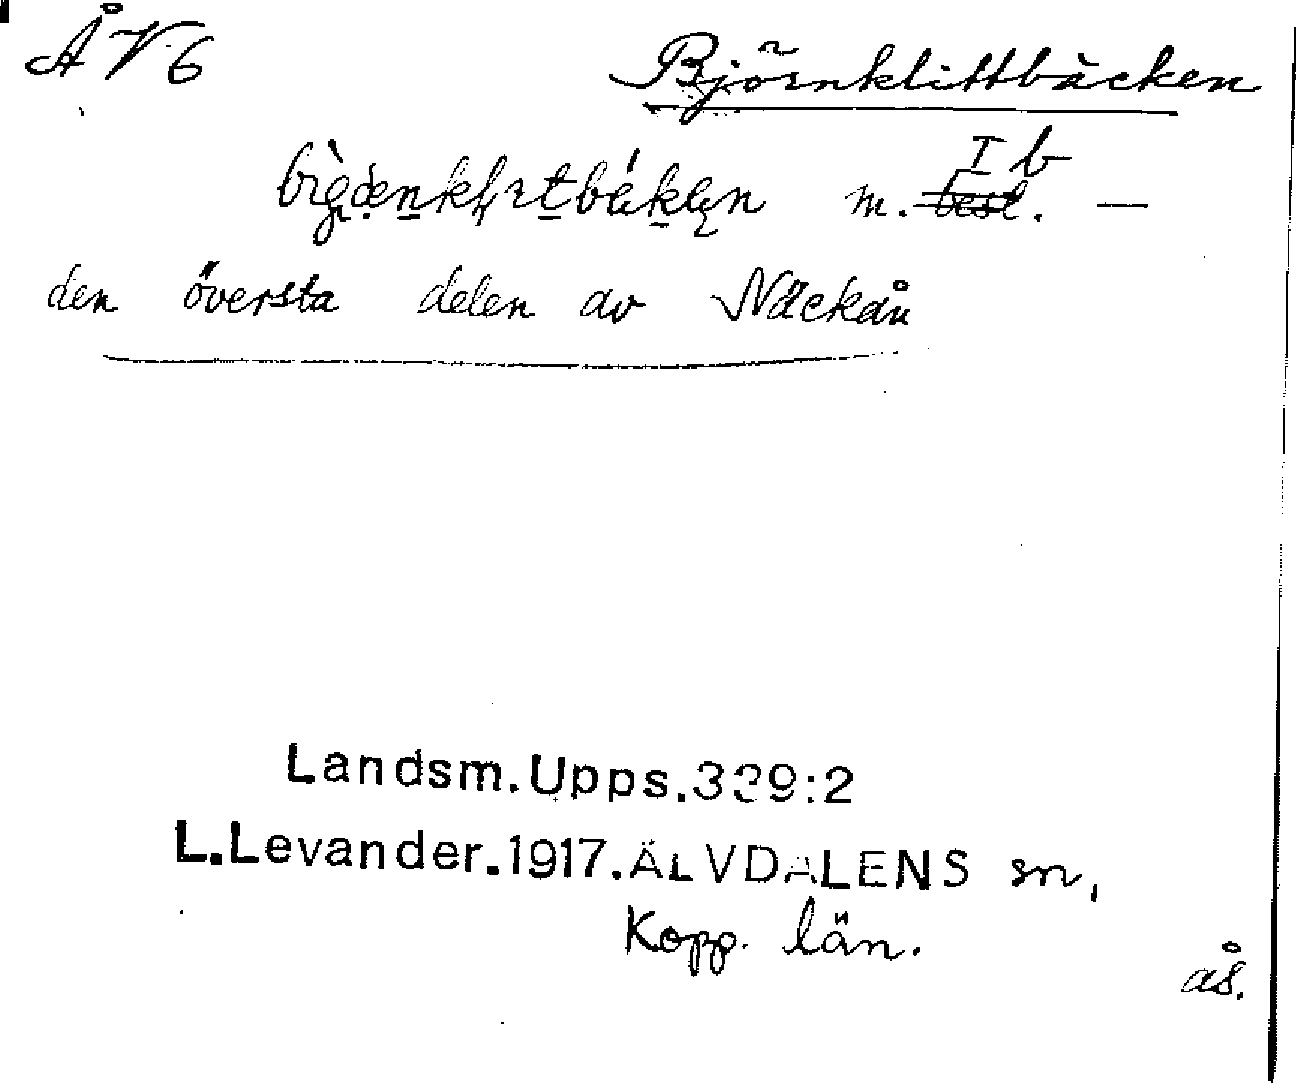 ÅV6
Björnklittbäcken
m. I b best. —
den översta delen av Näckån
Landsm.Upps.339:2
L.Levander.1917.ÄLVDALENS sn,
Kopp. län.
ås.